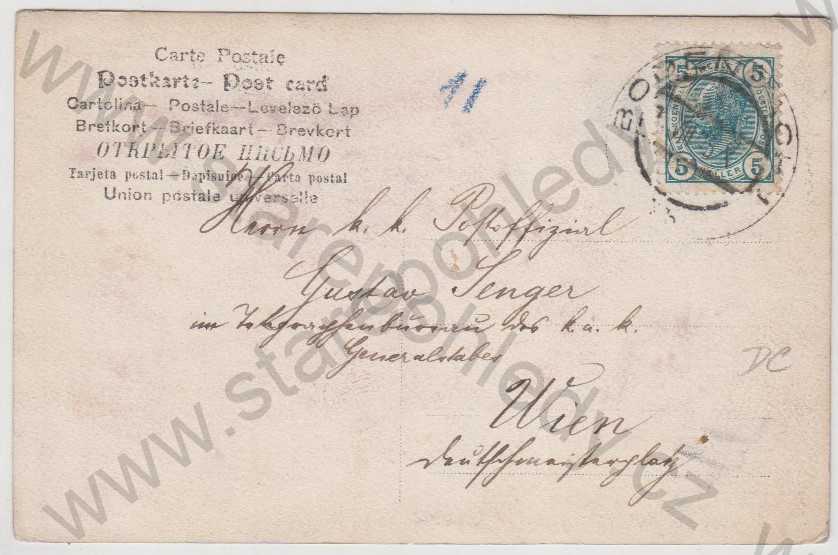 Carte Postale
Postkarte — Post card
Cartolina — Postale — Levelezö Lap
Brefkort — Briefkaart — Brevkort
ОТКРЫТОЕ ПИСЬМО
Tarjeta postal — Dopisnice — Carta postal
Union postale universelle
11
5 5
5 HELLER 5
BOZEN
Herrn k. k. Postoffizial
Gustav Senger
im Telegraphenbureau des k. u. k.
Generalstabes
Wien
Deutschmeisterplatz
DC
www.starepohledy.cz
www.starepohledy.cz